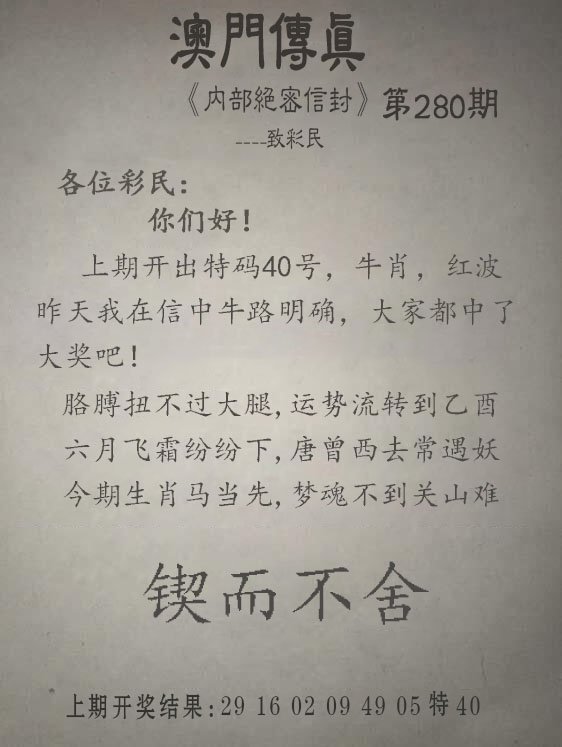 澳門傳眞
《内部絕密信封》第280期
----致彩民
各位彩民：
你们好！
上期开出特码40号，牛肖，红波
昨天我在信中牛路明确，大家都中了
大奖吧！
胳膊扭不过大腿,运势流转到乙酉
六月飞霜纷纷下,唐曾西去常遇妖
今期生肖马当先,梦魂不到关山难
锲而不舍
上期开奖结果：29 16 02 09 49 05 特 40